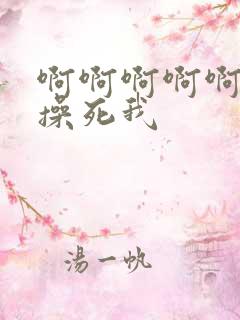 啊啊啊啊啊
操死我
湯一帆